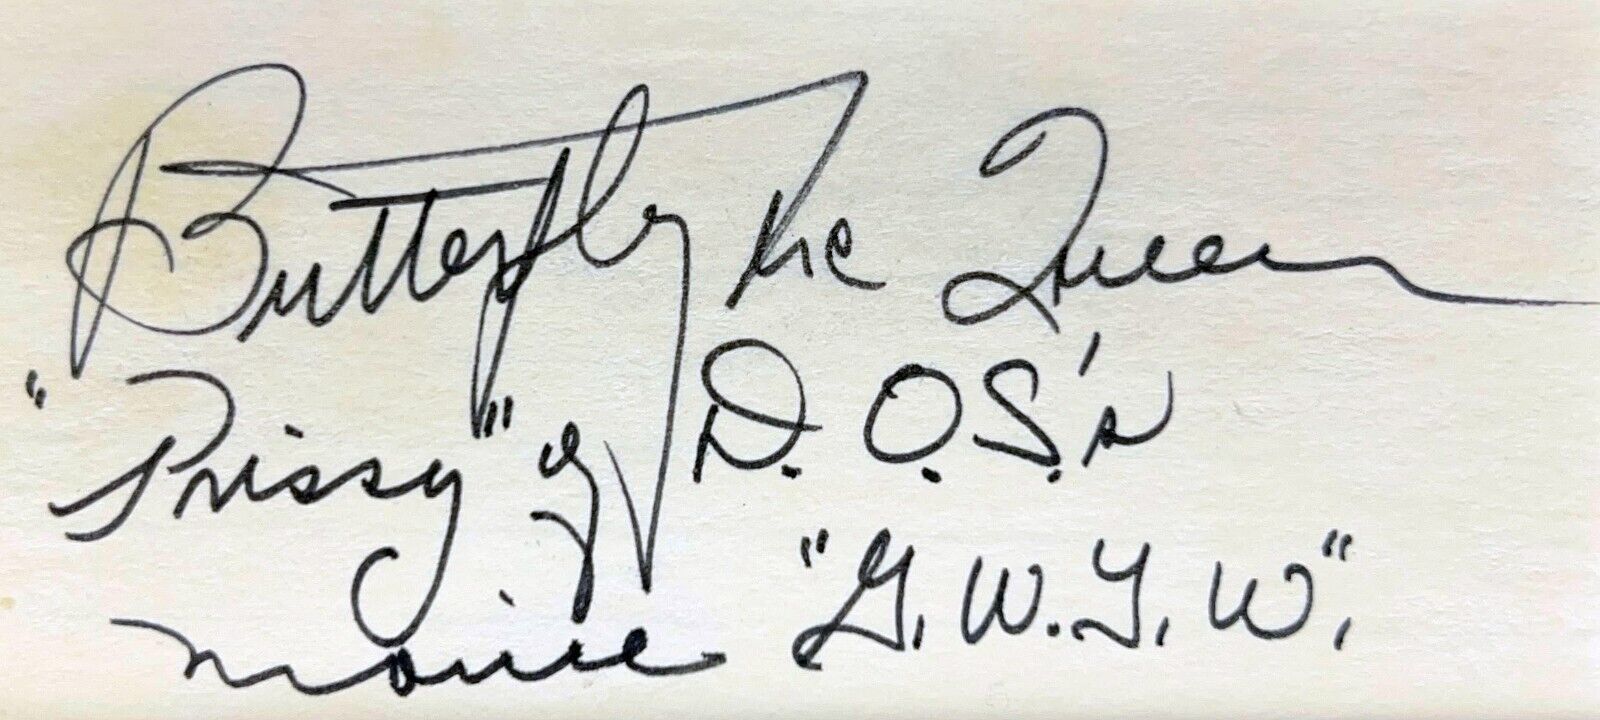 Butterfly McQueen
"Prissy" of D.O.S.'s
movie "G.W.T.W".